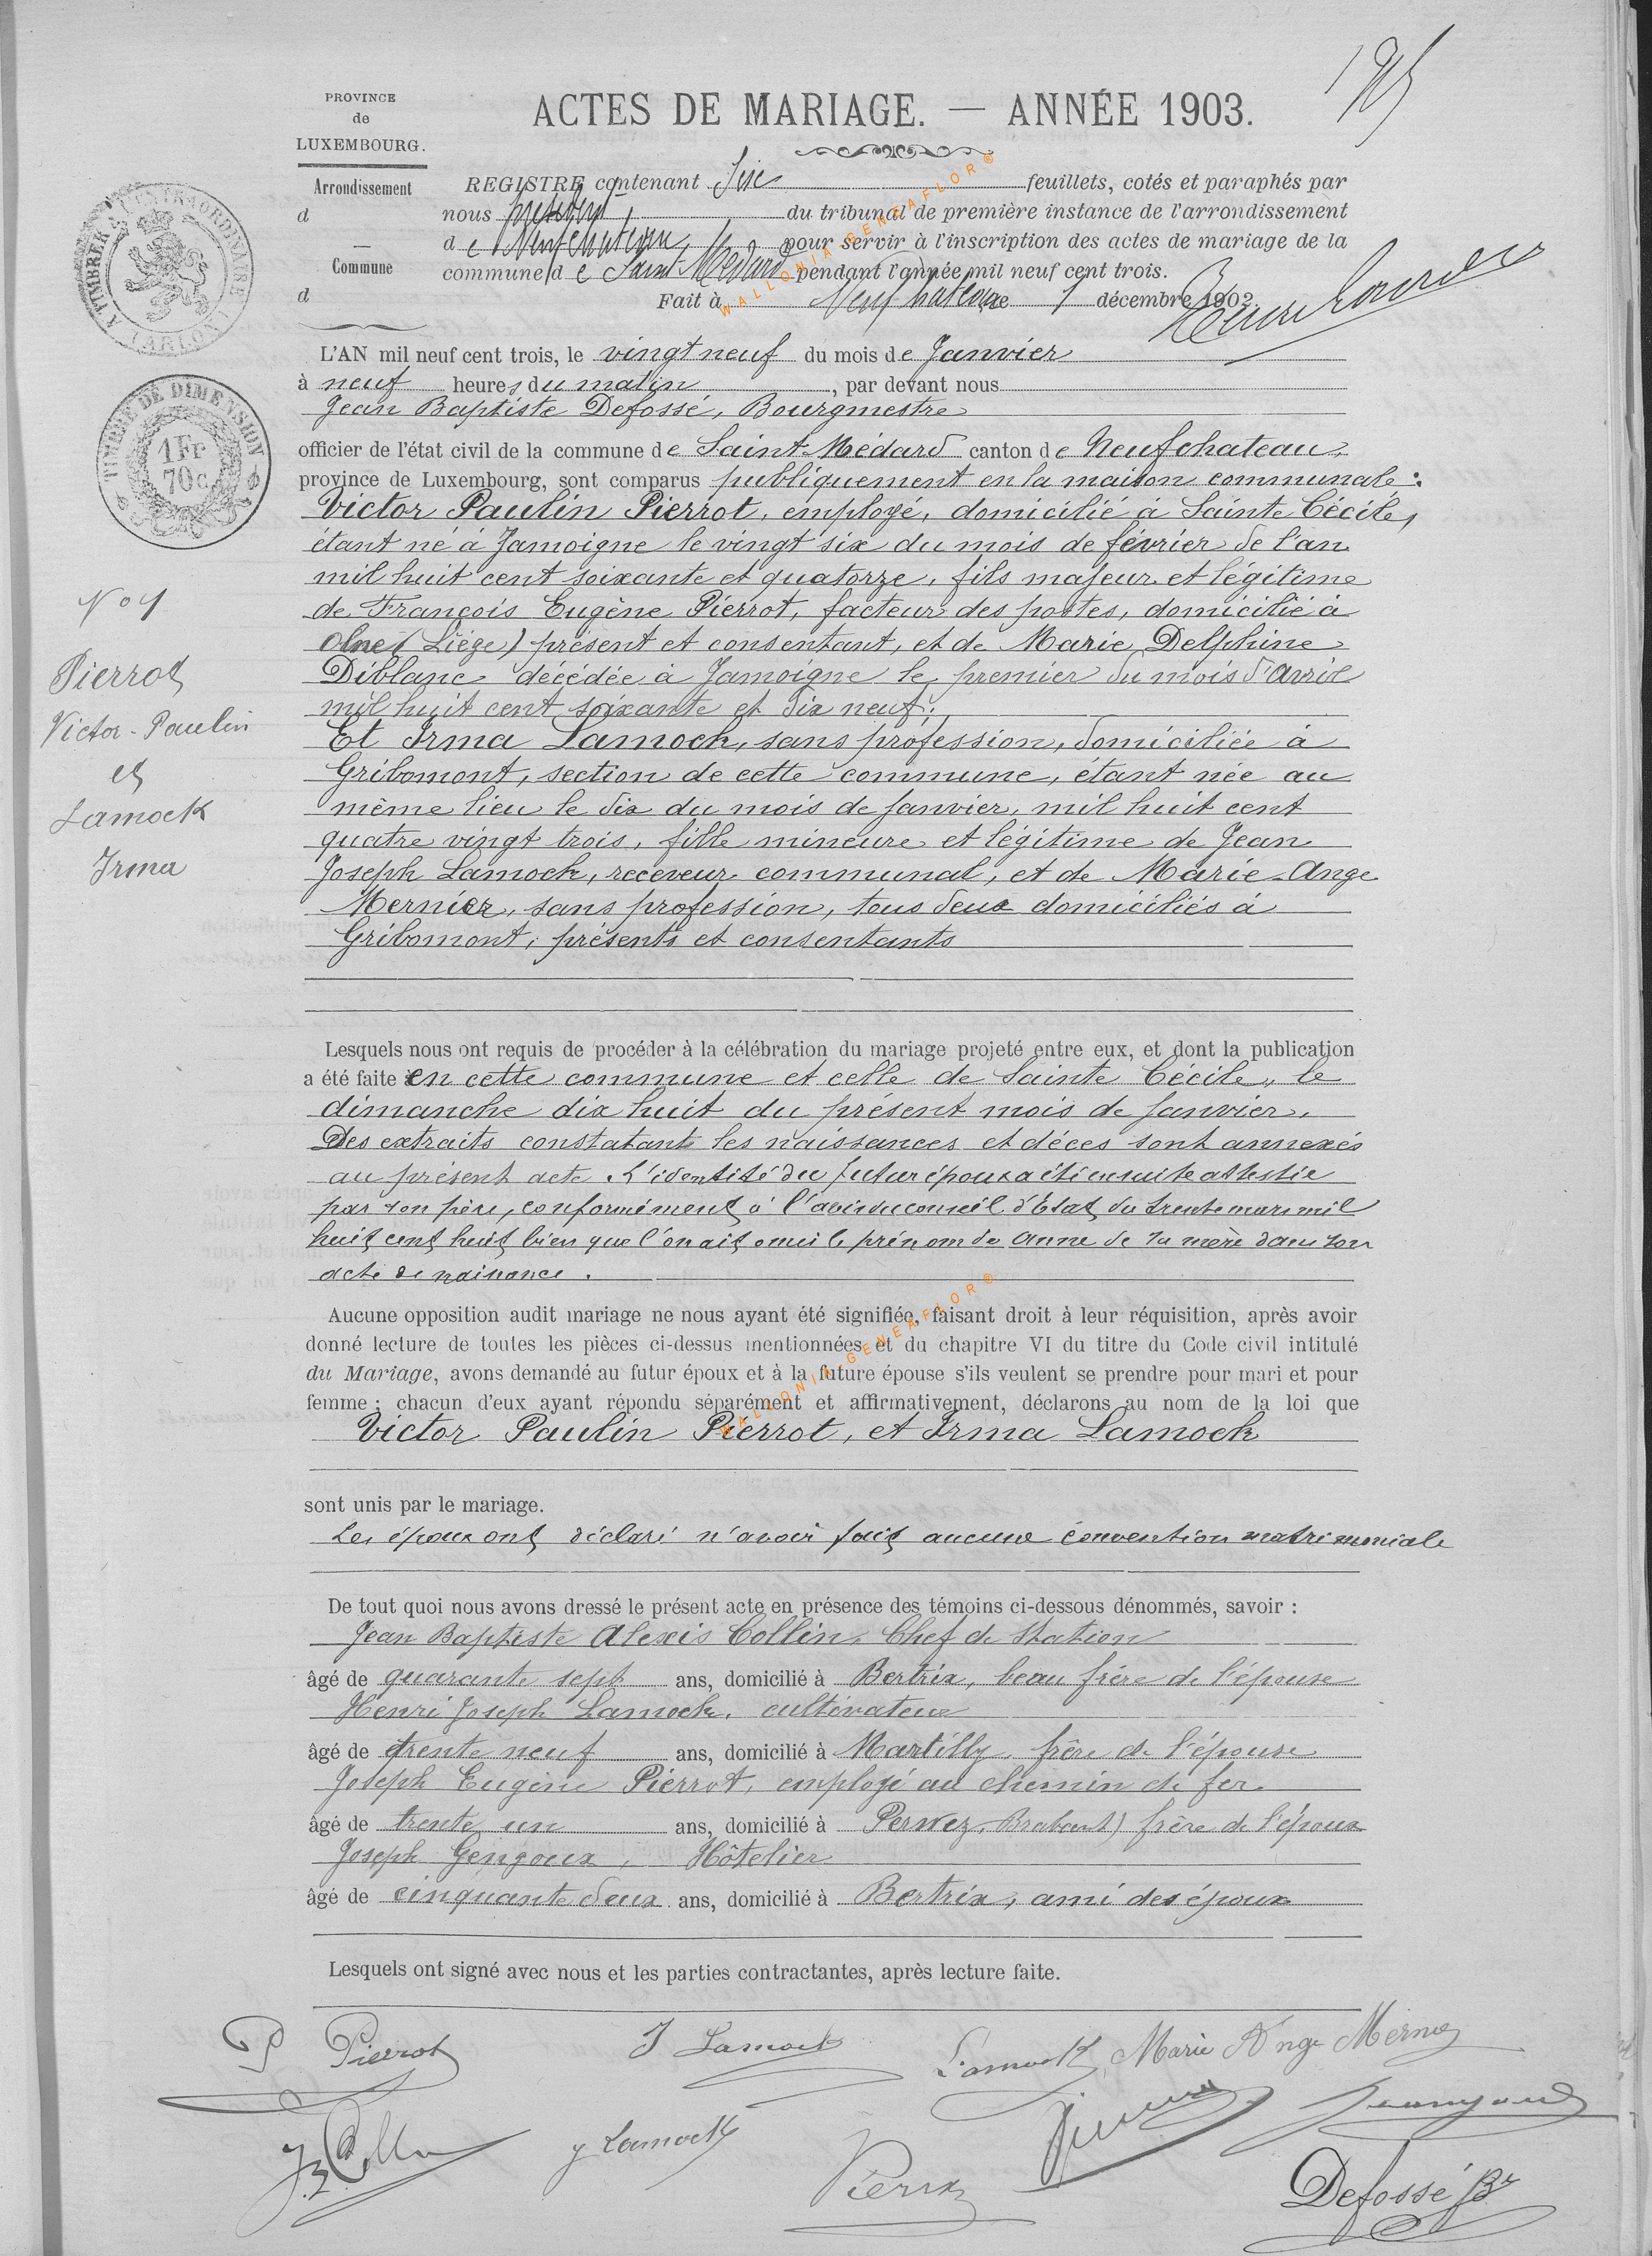 195
PROVINCE
de
LUXEMBOURG.
ACTES DE MARIAGE. — ANNÉE 1903.
Arrondissement
d
Commune
d
REGISTRE contenant Six feuillets, cotés et paraphés par
nous président, du tribunal de première instance de l'arrondissement
de Neufchateau, pour servir à l'inscription des actes de mariage de la
commune de Saint Médard pendant l'année mil neuf cent trois.
Fait à Neufchateau, le décembre 1902.
A TIMBRER EXTRAORDINAIRE
(ARLON)
TIMBRE DE DIMENSION
1 Fr
70 c
WALLONIA GENEAFLOR ®
L'AN mil neuf cent trois, le vingt neuf du mois de Janvier
à neuf heures du matin, par devant nous
Jean Baptiste Defossé, Bourgmestre
officier de l'état civil de la commune de Saint-Médard canton de Neufchateau,
province de Luxembourg, sont comparus publiquement en la maison communale :
Victor Paulin Pierrot, employé, domicilié à Sainte Cécile,
étant né à Jamoigne le vingt six du mois de février de l'an
mil huit cent soixante et quatorze, fils majeur et légitime
de François Eugène Pierrot, facteur des postes, domicilié à
Olne (Liège) présent et consentant, et de Marie Delphine
Diblanc décédée à Jamoigne le premier du mois d'Avril
mil huit cent soixante et dix neuf;
Et Irma Lamock, sans profession, domiciliée à
Gribomont, section de cette commune, étant née au
même lieu le dix du mois de Janvier, mil huit cent
quatre vingt trois, fille mineure et légitime de Jean
Joseph Lamock, receveur communal, et de Marie-Ange
Mernier, sans profession, tous deux domiciliés à
Gribomont, présents et consentants
N° 1
Pierrot
Victor-Paulin
et
Lamock
Irma
Lesquels nous ont requis de procéder à la célébration du mariage projeté entre eux, et dont la publication
a été faite en cette commune et celle de Sainte Cécile, le
dimanche dix huit du présent mois de Janvier.
Des extraits constatant les naissances et décès sont annexés
au présent acte. L'identité du futur époux a été ensuite attestée
par son père, conformément à l'avis du conseil d'Etat du trente mars mil
huit cent huit bien que l'on ait omis le prénom de Anne de sa mère dans son
acte de naissance.
Aucune opposition audit mariage ne nous ayant été signifiée, faisant droit à leur réquisition, après avoir
donné lecture de toutes les pièces ci-dessus mentionnées et du chapitre VI du titre du Code civil intitulé
du Mariage, avons demandé au futur époux et à la future épouse s'ils veulent se prendre pour mari et pour
femme ; chacun d'eux ayant répondu séparément et affirmativement, déclarons au nom de la loi que
WALLONIA GENEAFLOR ®
Victor Paulin Pierrot, et Irma Lamock
sont unis par le mariage.
Les époux ont déclaré n'avoir fait aucune convention matrimoniale
De tout quoi nous avons dressé le présent acte en présence des témoins ci-dessous dénommés, savoir :
Jean Baptiste Alexis Collin, Chef de Station
âgé de quarante sept ans, domicilié à Bertrix, beau frère de l'épouse
Henri Joseph Lamock, cultivateur
âgé de trente neuf ans, domicilié à Martilly, frère de l'épouse
Joseph Eugène Pierrot, employé au chemin de fer.
âgé de trente un ans, domicilié à Perwez, Brabant) frère de l'époux
Joseph Gengoux, Hôtelier
âgé de cinquante deux ans, domicilié à Bertrix, ami des époux
Lesquels ont signé avec nous et les parties contractantes, après lecture faite.
P Pierrot
I Lamock
Lamock
Marie Ange Mernier
J.B. Collin
J Lamock
Pierrot
Defossé Br